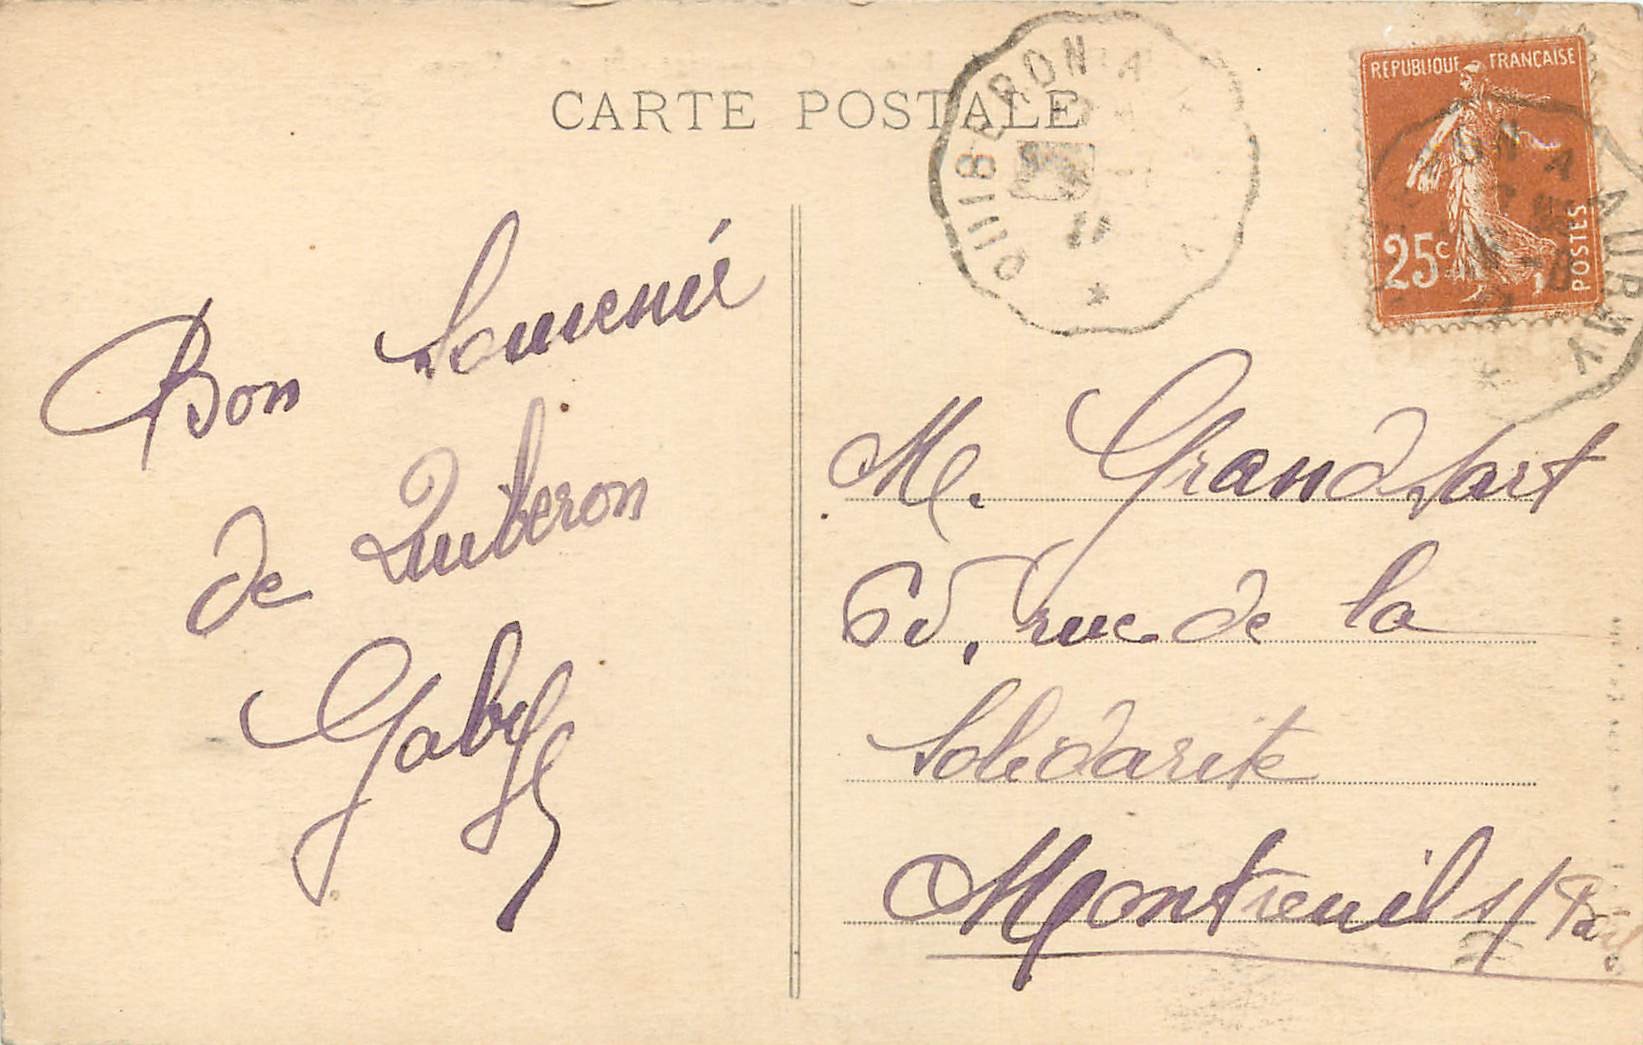 CARTE POSTALE
QUIBERON A
RÉPUBLIQUE FRANÇAISE
25c
POSTES
A AURAY
Bon Souvenir
de Quiberon
Gaby
M. Grand
65, rue de la
Solidarité
Montreuil s/